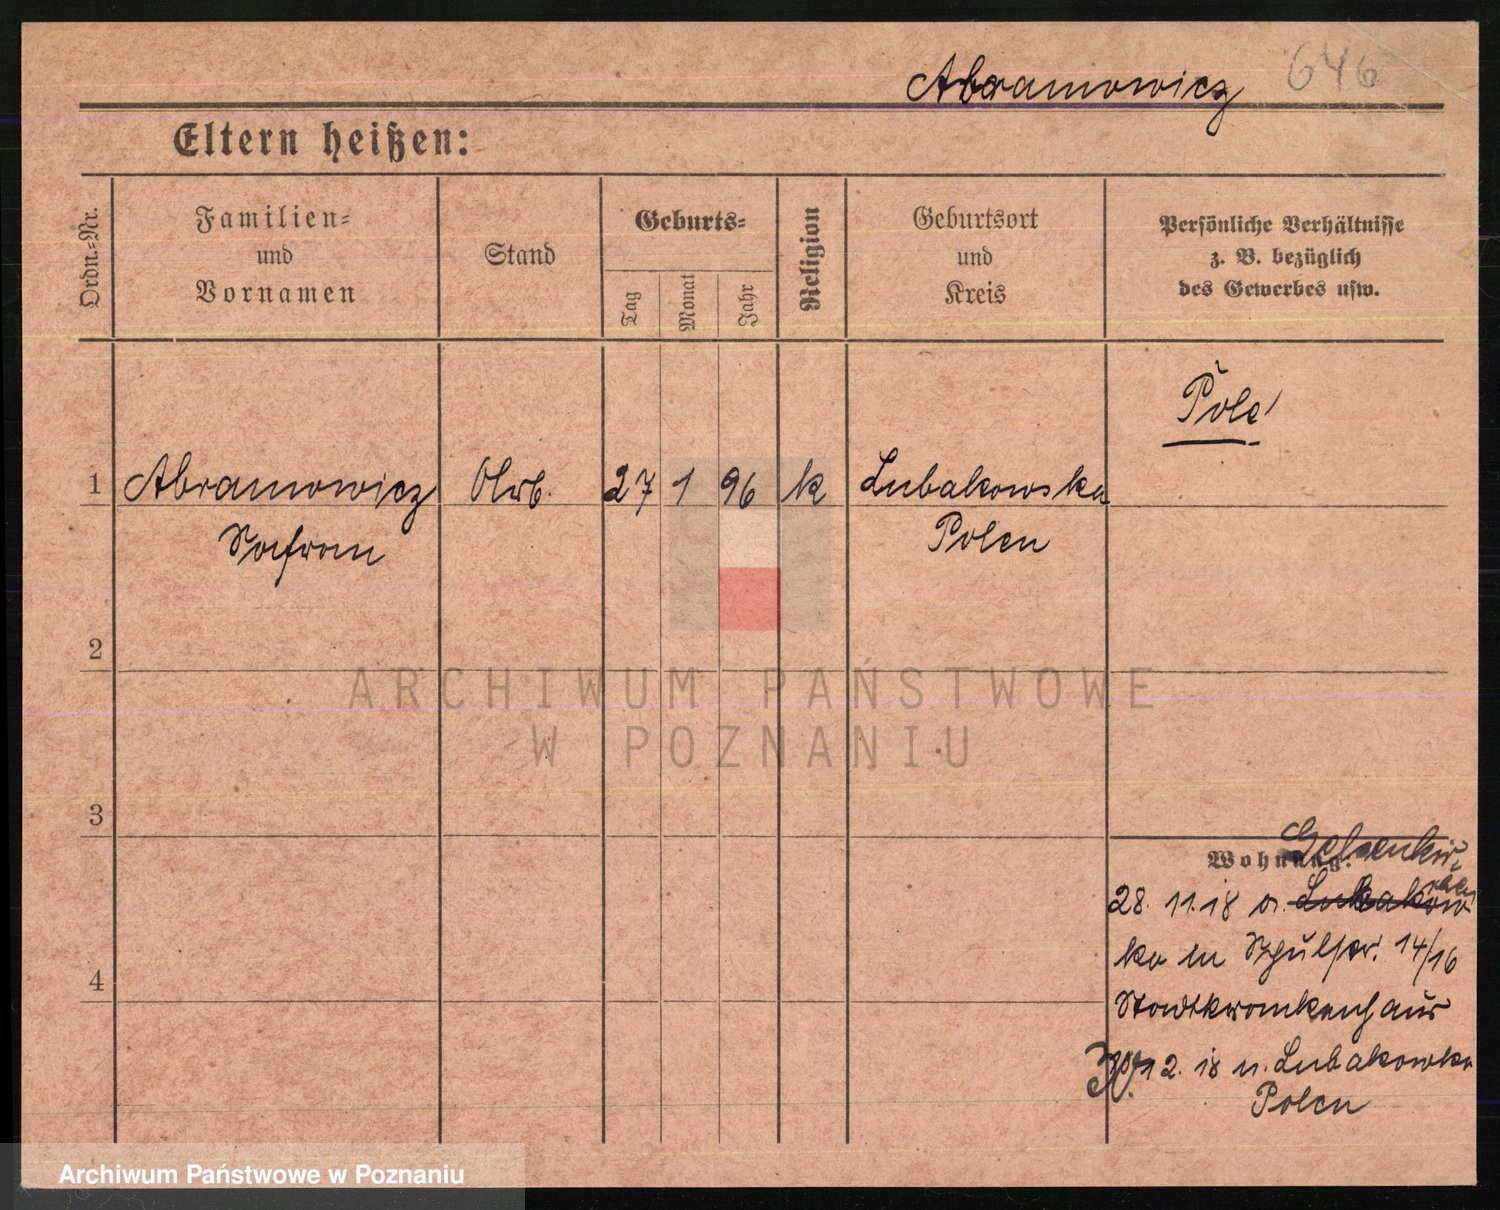 Abramowicz 646
Eltern heißen:
Ordn.=Nr.
Familien=
und
Vornamen
Stand
Geburts=
Tag
Monat
Jahr
Religion
Geburtsort
und
Kreis
Persönliche Verhältnisse
z. B. bezüglich
des Gewerbes usw.
Pole
1 Abramowicz Arb. 27 1 96 k Lubakowska
Safran Polen
2
ARCHIWUM PAŃSTWOWE
W POZNANIU
3
Wohnung: Gelsenkir-
chen
28. 11. 18 v. Lubakow
ka in Schulstr. 14/16
4
Stadtkrankenhaus
30. 12. 18 n. Lubakowka
Polen
Archiwum Państwowe w Poznaniu